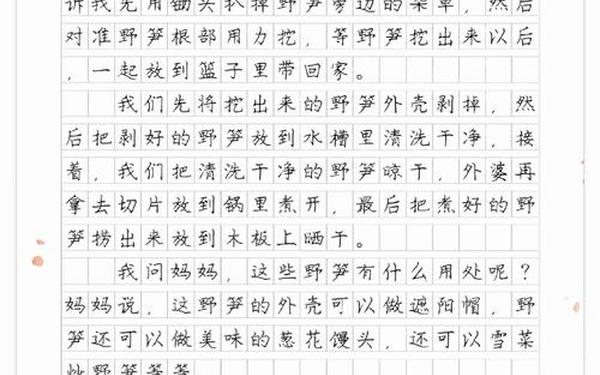 诉我先用锄头扒掉野笋旁边的杂草，然后
对准野笋根部用力挖，等野笋挖出来以后
，一起放到篮子里带回家。
我们先将挖出来的野笋外壳剥掉，然
后把剥好的野笋放到水槽里清洗干净，接
着，我们把清洗干净的野笋晾干，外婆再
拿去切片放到锅里煮开，最后把煮好的野
笋捞出来放到木板上晒干。
我问妈妈，这些野笋有什么用处呢？
妈妈说，这野笋的外壳可以做遮阳帽，野
笋还可以做美味的葱花馒头，还可以雪菜
炒野笋等等